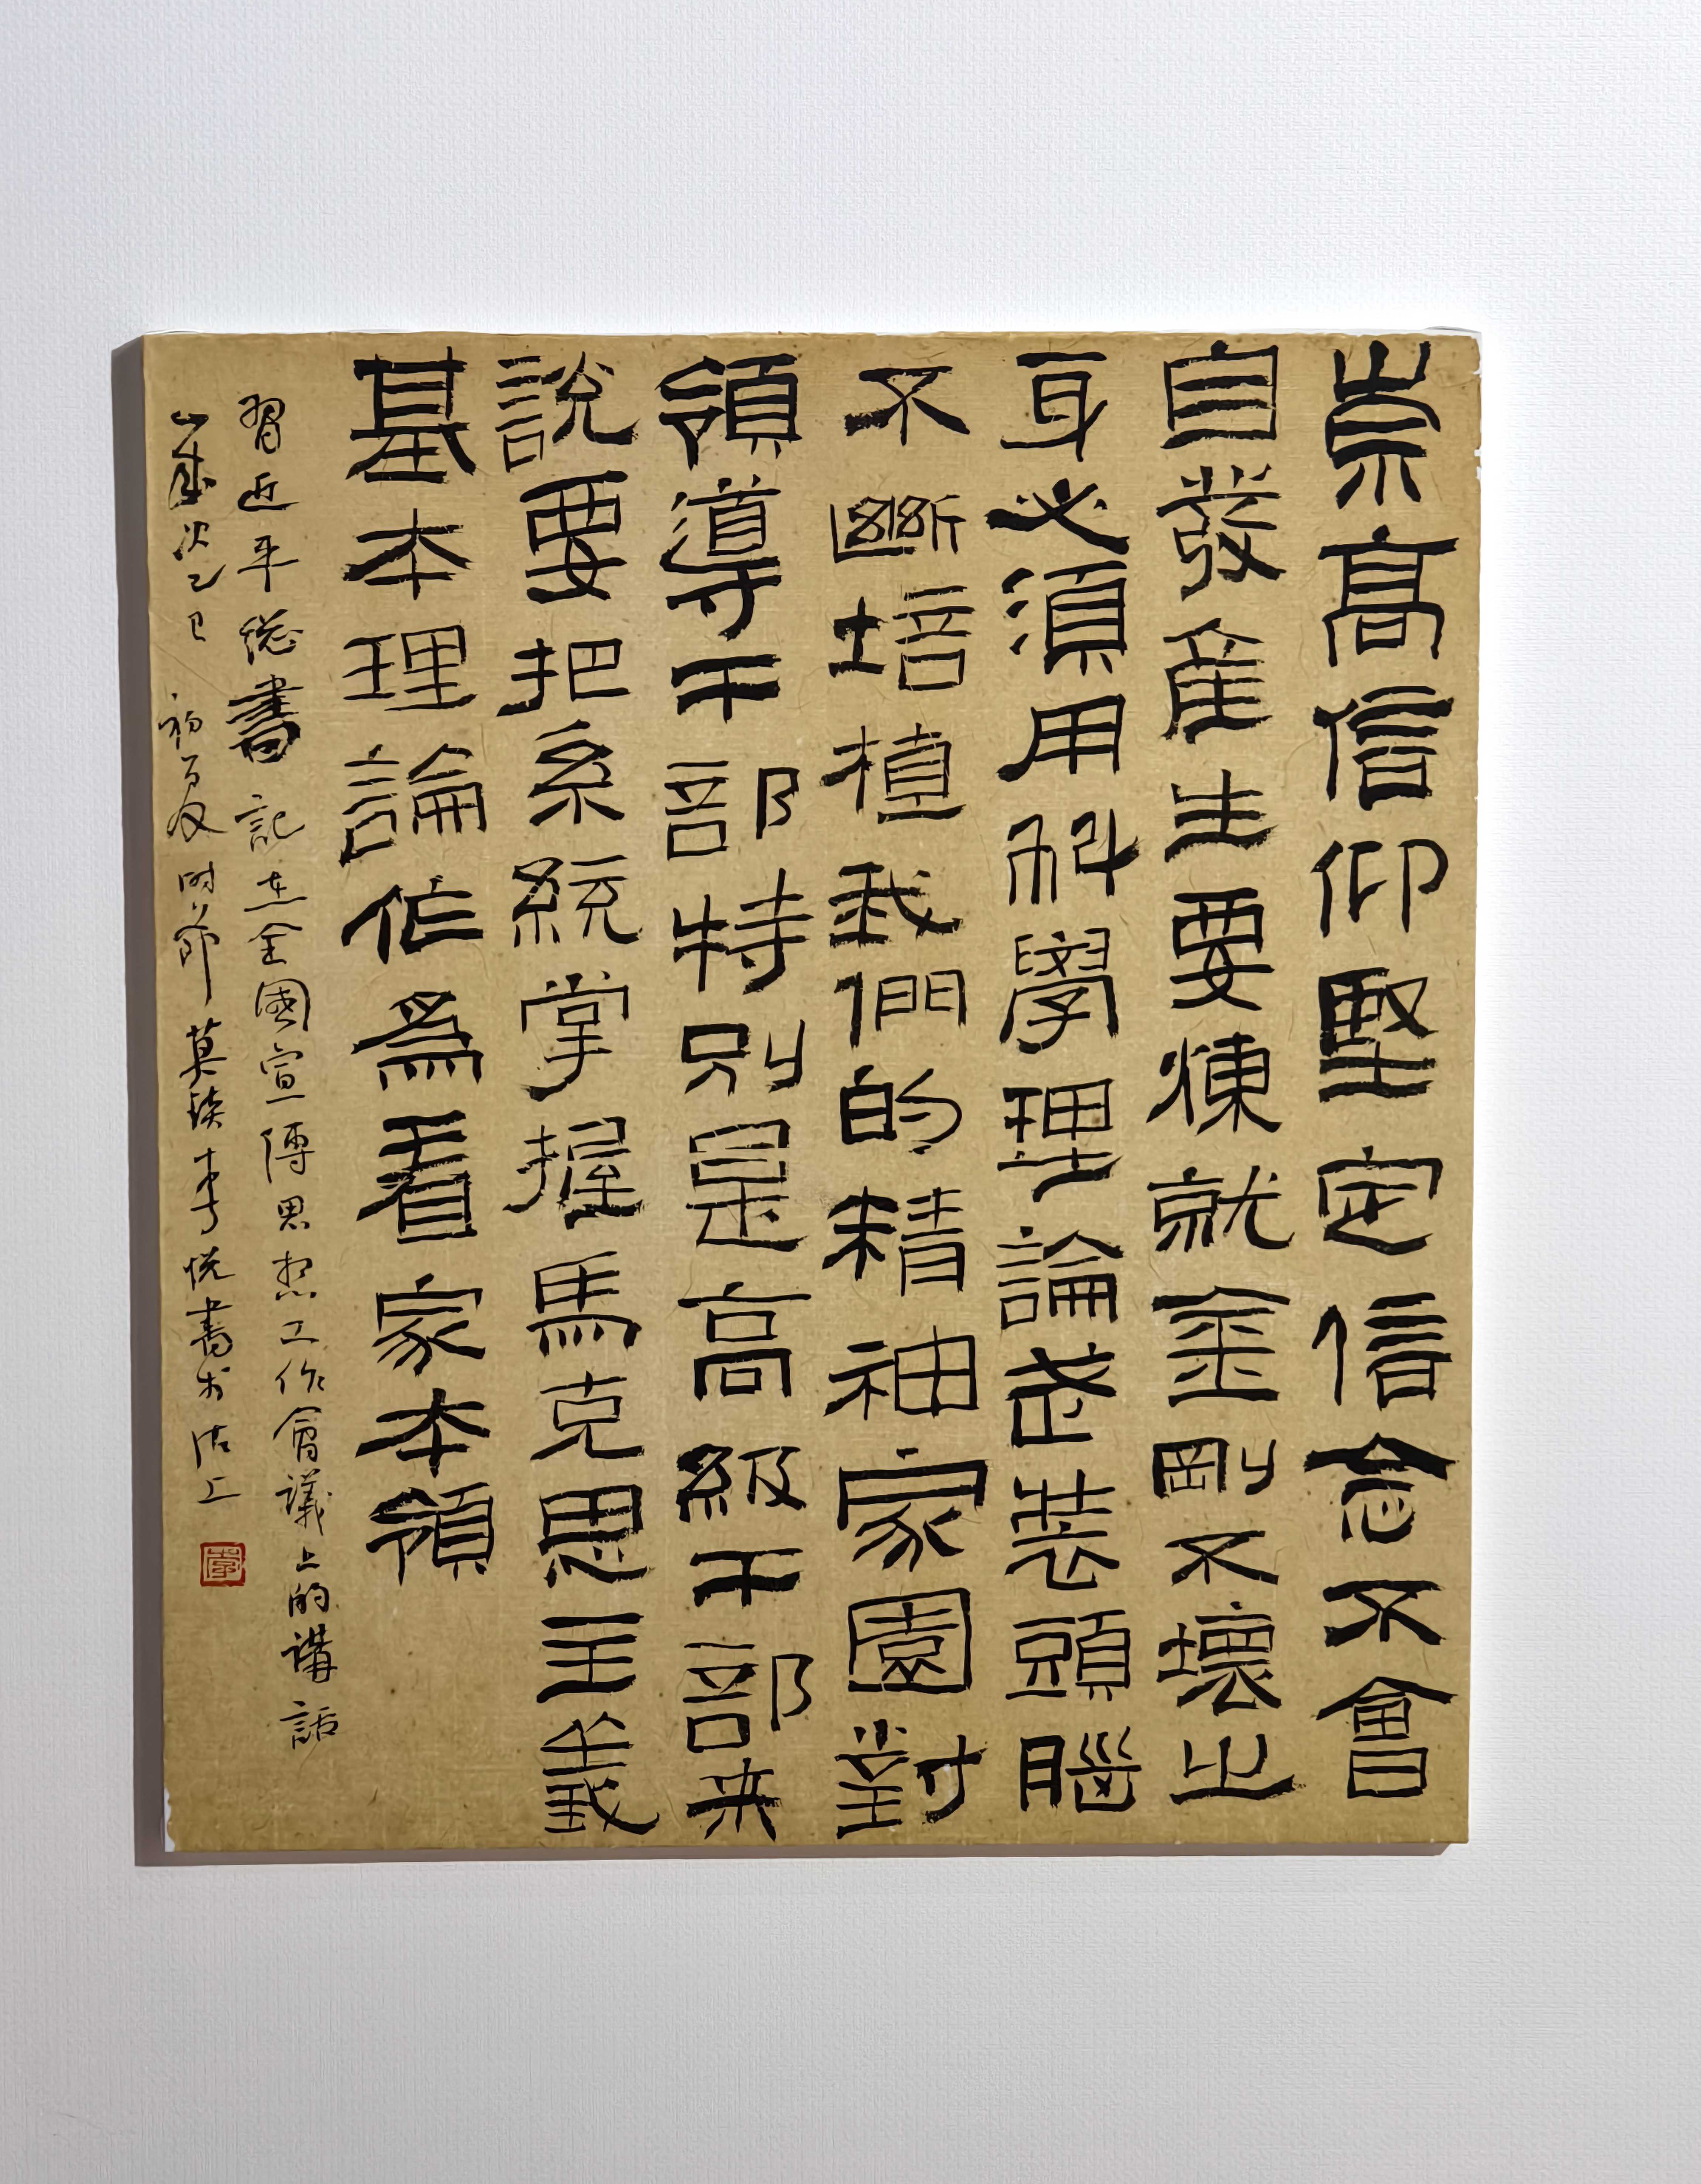 崇高信仰堅定信念不會
自發産生要煉就金剛不壞之
身必須用科學理論武裝頭腦
不斷培植我們的精神家園對
領導干部特别是高級干部来
說要把系統掌握馬克思主義
基本理論作爲看家本領
習近平總書記在全國宣傳思想工作會議上的講話
歲次乙巳初夏时節莫鍈李悦書於沽上